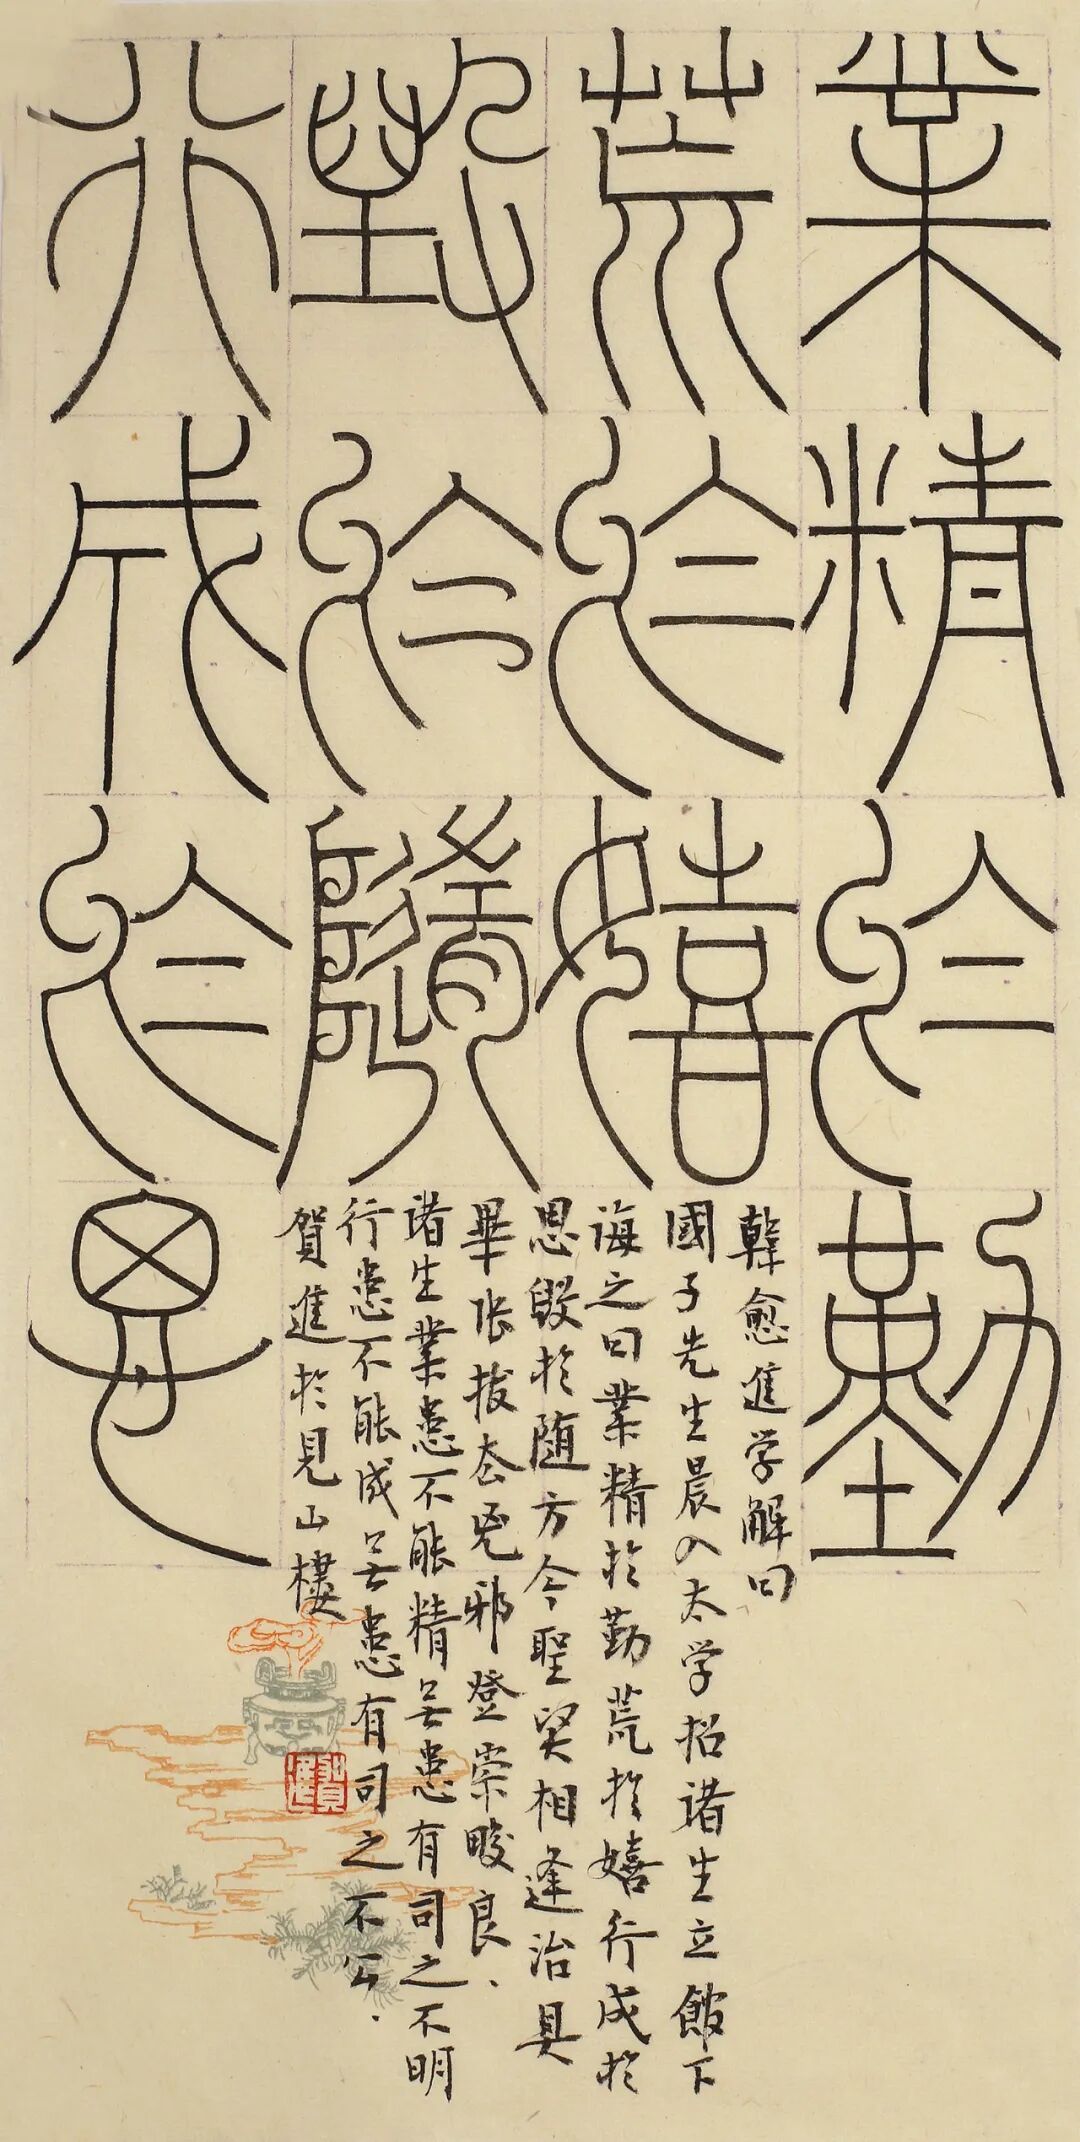 業精於勤
荒於嬉
毀於隨
行成於思
韓愈進学解曰
國子先生晨入太学招诸生立館下
诲之曰業精於勤荒於嬉行成於
思毁於随方今聖賢相逢治具
畢张拔去兇邪登崇畯良
诸生業患不能精旡患有司之不明
行患不能成旡患有司之不公
賀進於見山樓
賀進